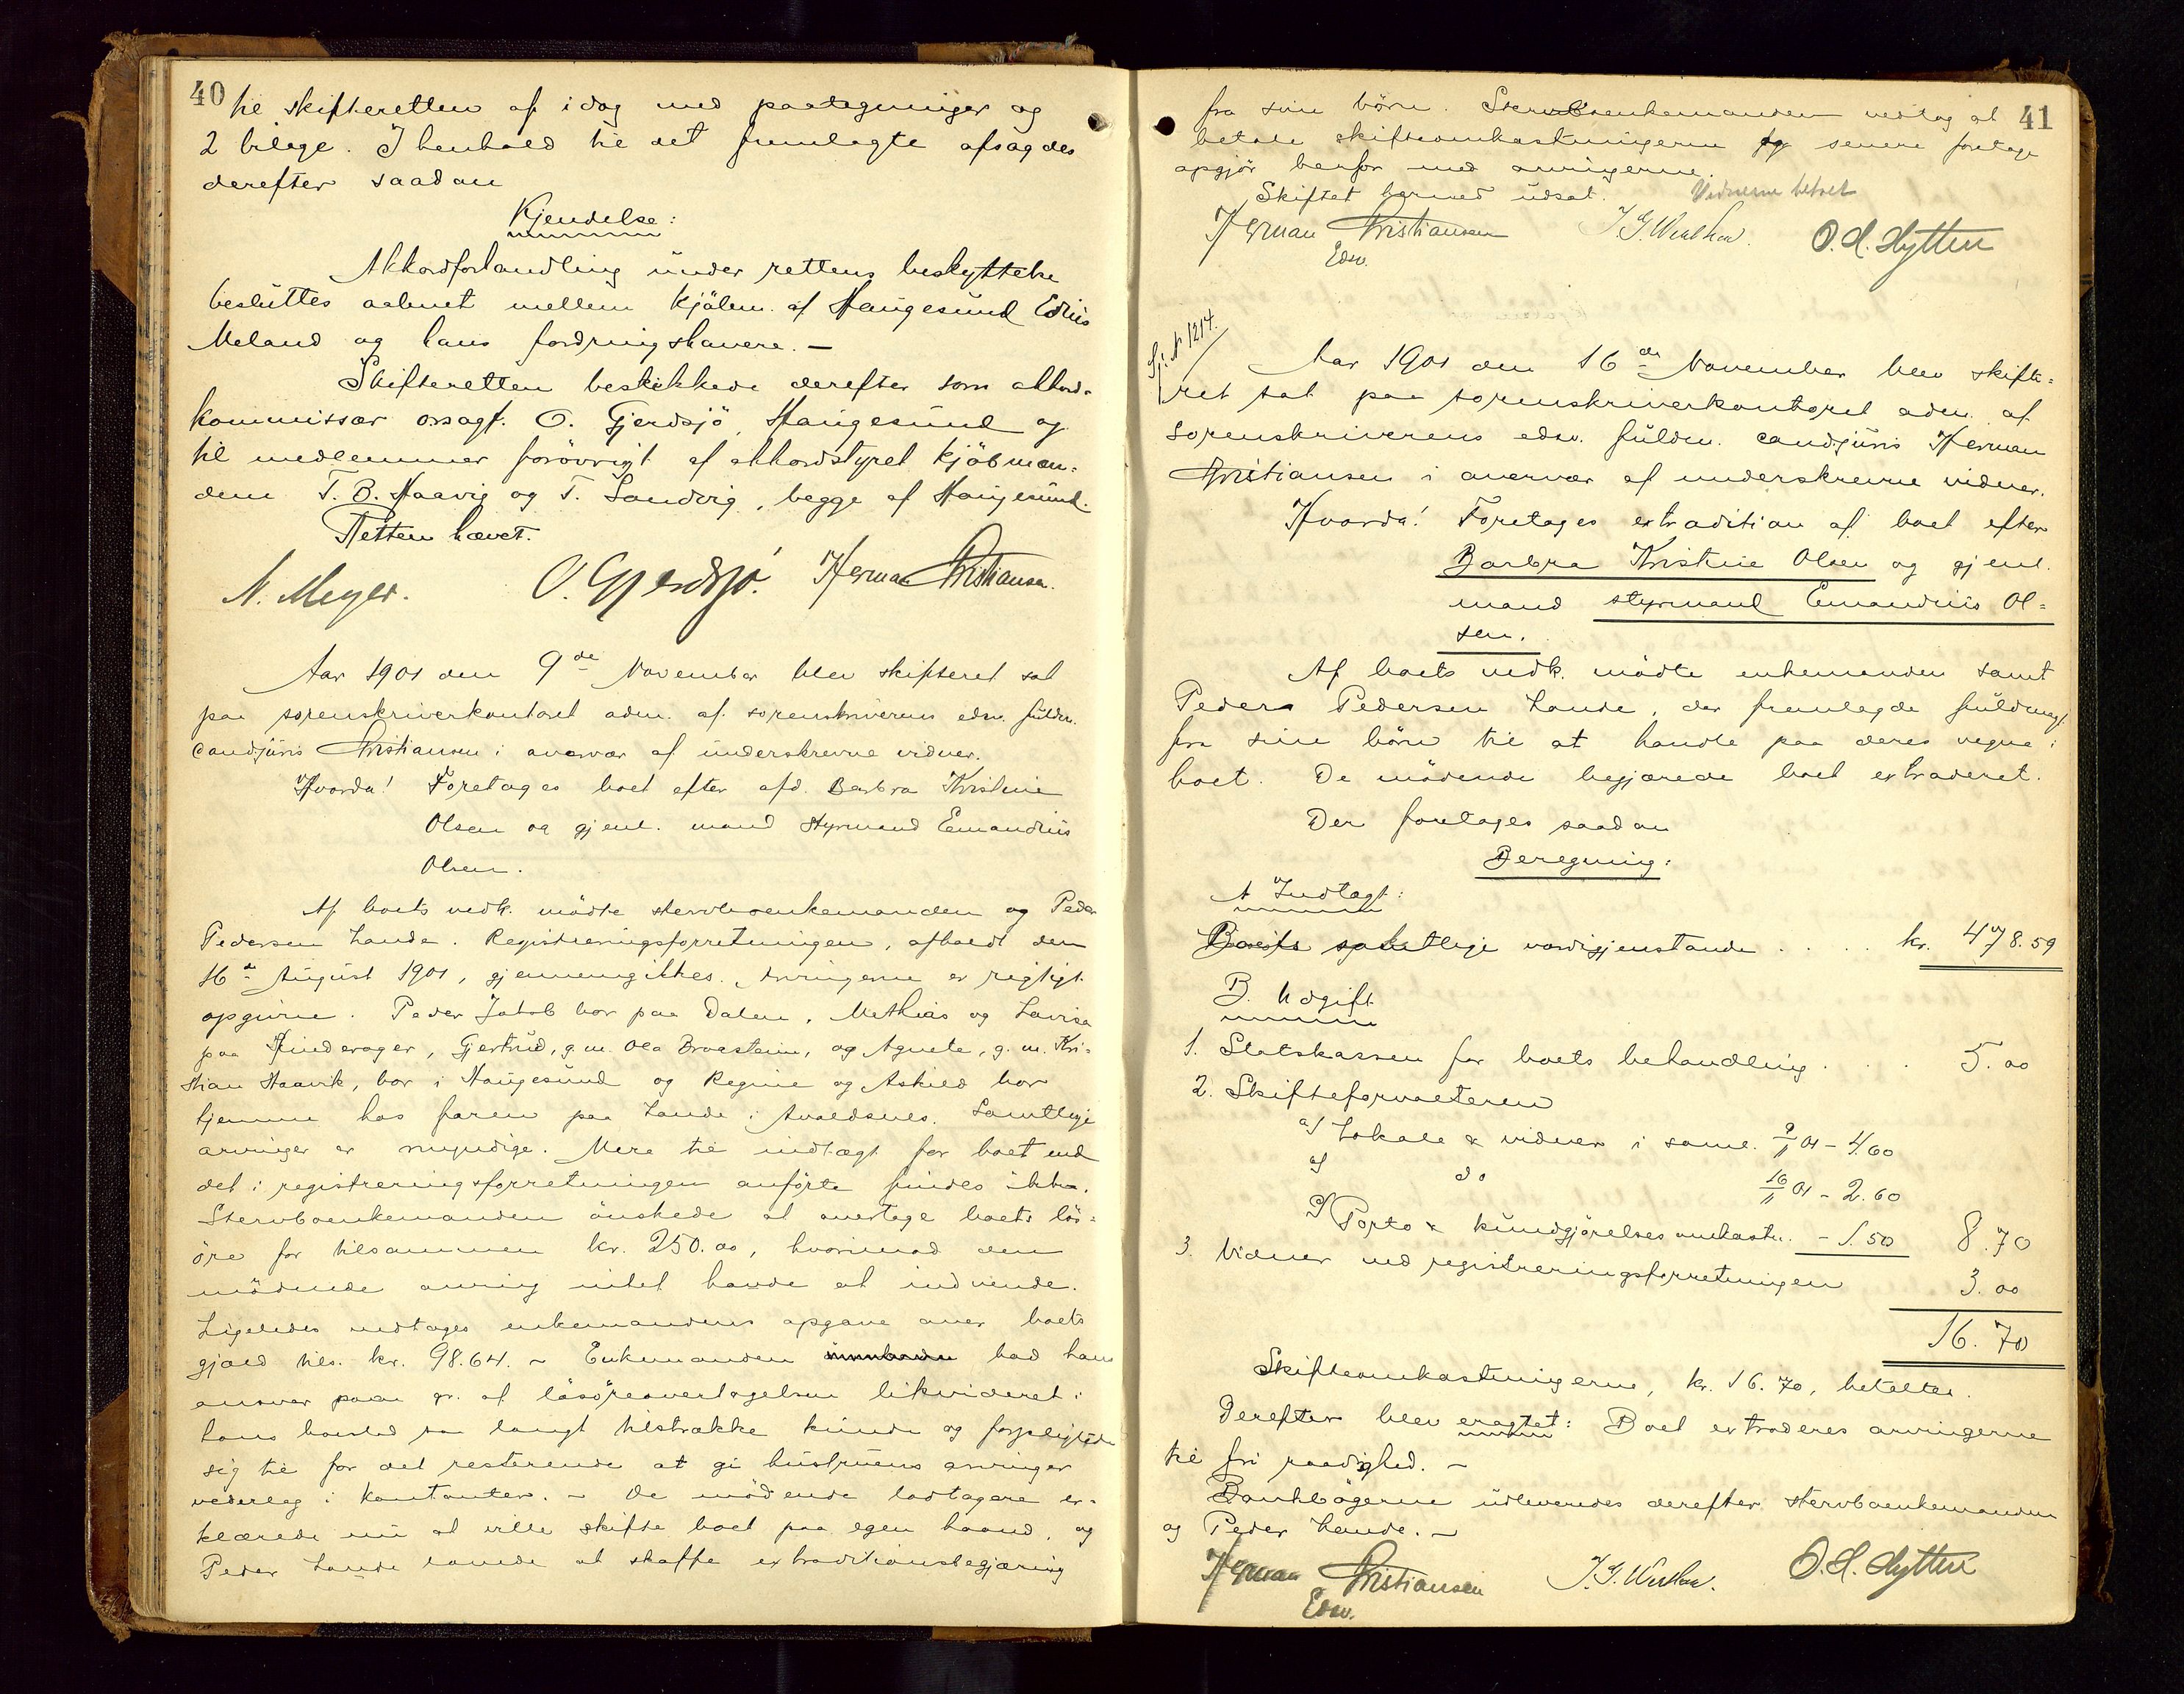 40
til skifteretten af idag med paategninger og
2 bilage. I henhold til det fremlagte afsagdes
derefter saadan
Kjendelse:
Akkordforhandling under rettens beskyttelse
besluttes aabnet mellem kjöbm. af Haugesund Edvin
Meland og hans fordringshavere. —
Skifteretten beskikkede derefter som akkord-
kommissær orsagf. O. Gjerdsjö, Haugesund og
til medlemmer forövrigt af akkordstyret kjöbmæn-
dene T. B. Haavig og T. Sandvig, begge af Haugesund.
Retten hævet.
N. Meyer. O. Gjerdsjö. Herman Kristiansen.
Aar 1901 den 9de November blev skifteret sat
paa sorenskriverkontoret adm. af sorenskriverens edsv. fuldm.
cand. juris Kristiansen i overvær af underskrevne vidner.
Hvorda! Foretages boet efter afd. Barbra Kristine
Olsen og gjenl. mand styrmand Emandrius
Olsen.
Af boets vedk. mödte stervboenkemanden og Peder
Pedersen Lande. Registreringsforretningen, afholdt den
16de August 1901, gjennemgikkes. Arvingerne er rigtigt
opgivne. Peder Jakob bor paa Dalen, Mathias og Lovisa
paa Kinderager, Gjertrud, g. m. Ola Broesteim, og Agnete, g. m. Kri-
stian Haavik, bor i Haugesund og Regine og Askild bor
hjemme hos faren paa Lande i Avaldsnes. Samtlige
arvinger er myndige. Mere til indtægt for boet end
det i registreringsforretningen anförte findes ikke.
Stervboenkemanden önskede at overtage boets lös-
öre for tilsammen kr. 250.00, hvorimod den
mödende arving intet havde at indvende.
Ligeledes vedtages enkemandens opgave over boets
gjæld tils. kr. 98.64. – Enkemanden bad hans
ansvar paa gr. af lösöreovertagelsen likvideret i
hans boslod saa langt tilstrække kunde og forpligtede
sig til for det resterende at gi hustruens arvinger
vederlag i kontanter. – De mödende lodtagere er-
klærede nu at ville skifte boet paa egen haand, og
Peder Lande lovede at skaffe extraditionsbegjæring
41
fra sine börn. Stervboenkemanden vedtog at
betale skifteomkostningerne og senere foretage
opgjör herfor med arvingerne.
Skiftet hermed udsat. Vidnerne betalt
Herman Kristiansen J. G. Wulf O. H. Hytten
Edsv.
Sj. N 1214.
Aar 1901 den 16de November blev skifte-
ret sat paa sorenskriverkontoret adm. af
sorenskriverens edsv. fuldm. cand. juris Herman
Kristiansen i overvær af underskrevne vidner.
Hvorda! Foretages extradition af boet efter
Barbra Kristine Olsen og gjenl.
mand styrmand Emandrius Ol-
sen.
Af boets vedk. mödte enkemanden samt
Peder Pedersen Lande, der fremlagde fuldmagt
fra sine börn til at handle paa deres vegne i
boet. De mödende begjærede boet extraderet.
Der foretages saadan
Beregning:
A Indtægt:
Boets samtlige værdigjenstande . . . . kr. 478.59
B. Udgift
1. Statskassen for boets behandling . . . 5.00
2. Skifteforvalteren
a/ Lokale & vidner i saml. 9/11 01 – 4.60
a/ do 16/11 01 – 2.60
c/ Porto & kundgjörelsesomkostn. – 1.50 8.70
3. Vidner ved registreringsforretningen 3.00
16.70
Skifteomkostningerne, kr. 16.70, betaltes.
Derefter blev eragtet: Boet extraderes arvingerne
til fri raadighed. –
Bankbögerne udleveredes derefter stervboenkemanden
og Peder Lande. –
Herman Kristiansen J. G. O. H. Hytten
Edsv.